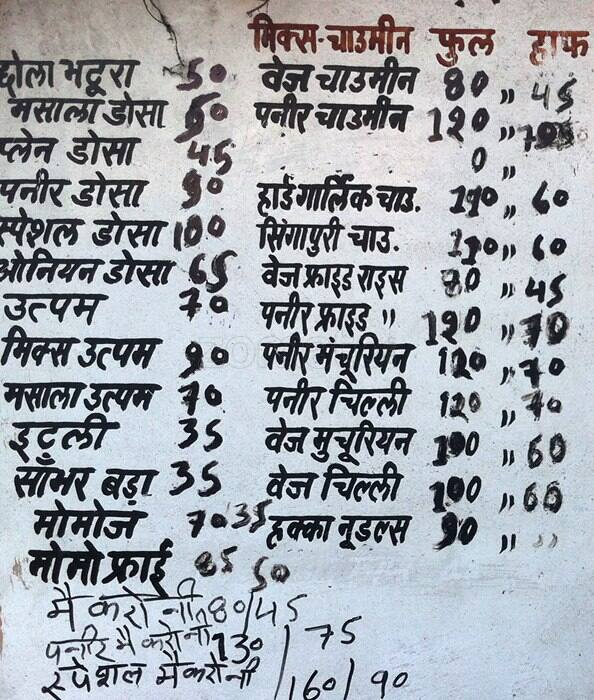 छोला भटूरा 50
मसाला डोसा 60
प्लेन डोसा 45
पनीर डोसा 90
स्पेशल डोसा 100
ओनियन डोसा 65
उत्पम 70
मिक्स उत्पम 90
मसाला उत्पम 70
इटुली 35
साँभर बड़ा 35
मोमोज 70 35
मोमो फ्राई 85 50
मिक्स-चाउमीन फुल हाफ
वेज चाउमीन 80 ,, 45
पनीर चाउमीन 120 ,,
0 ,,
हार्ड गार्लिक चाउ. 110 ,, 60
सिंगापुरी चाउ. 110 ,, 60
वेज फ्राइड राइस ,, 45
पनीर फ्राइड ,, 120 ,, 70
पनीर मंचूरियन 120 ,, 70
पनीर चिल्ली 120 ,, 70
वेज मुचूरियन 100 ,, 60
वेज चिल्ली 100 ,, 60
हक्का नूडल्स 90 ,, ,,
मैकरोनी 80/45
पनीर मैकरोनी 130/75
स्पेशल मैकरोनी 160/90